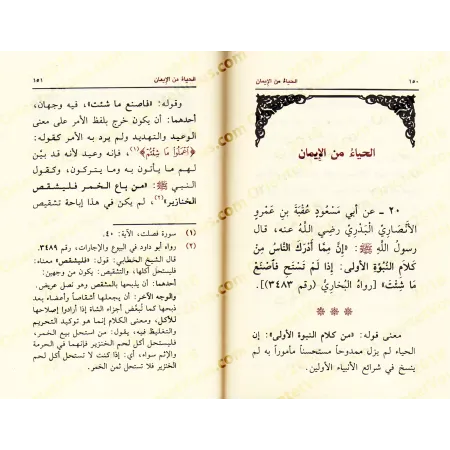 ١٥٠
الحياء من الإيمان
الحياءُ من الإيمان
٢٠ ـ عن أبي مَسْعُودٍ عُقْبَةَ بنِ عَمْرٍو
الأَنْصَارِيِّ البَدْرِيِّ رضي الله عنه، قال
رسولُ اللَّهِ ﷺ: «إِنَّ مِمَّا أَدْرَكَ النَّاسُ مِنْ
كَلَامِ النُّبُوَّةِ الأولى: إِذَا لَمْ تَسْتَحِ فَاصْنَعْ
مَا شِئْتَ» [رواه البُخَارِيُّ (رقم ٣٤٨٣)].
معنى قوله: «من كلام النبوة الأولى»: إن
الحياء لم يزل ممدوحاً مستحسناً مأموراً به لم
ينسخ في شرائع الأنبياء الأولين.
الحياء من الإيمان
١٥١
وقوله: «فاصنع ما شئت»، فيه وجهان،
أحدهما: أن يكون خرج بلفظ الأمر على معنى
الوعيد والتهديد ولم يرد به الأمر كقوله:
﴿اعْمَلُوا مَا شِئْتُمْ﴾(١)، فإنه وعيد لأنه قد بيّن
لهم ما يأتون به وما يتركون، وكقول
النبي ﷺ: «من باع الخمر فليشقص
الخنازير»(٢)، لم يكن في هذا إباحة تشقيص
(١) سورة فصلت، الآية: ٤٠.
(٢) رواه أبو داود في البيوع والإجارات، رقم ٣٤٨٩.
قال الشيخ الخطابي: قوله: «فليشقص» معناه:
فليستحل أكلها، والتشقيص: يكون من وجهين:
أحدهما: أن يذبحها بالمشقص وهو نصل عريض.
والوجه الآخر: أن يجعلها أشقاصاً وأعضاء بعد
ذبحها كما تُبعَّض أجزاء الشاة إذا أرادوا إصلاحها
للأكل، ومعنى الكلام إنما هو توكيد التحريم
والتغليظ فيه، يقول: من استحل بيع الخمر،
فليستحل أكل لحم الخنزير فإنهما في الحرمة
والإثم سواء، أي: إذا كنت لا تستحل أكل لحم
الخنزير فلا تستحل ثمن الخمر.